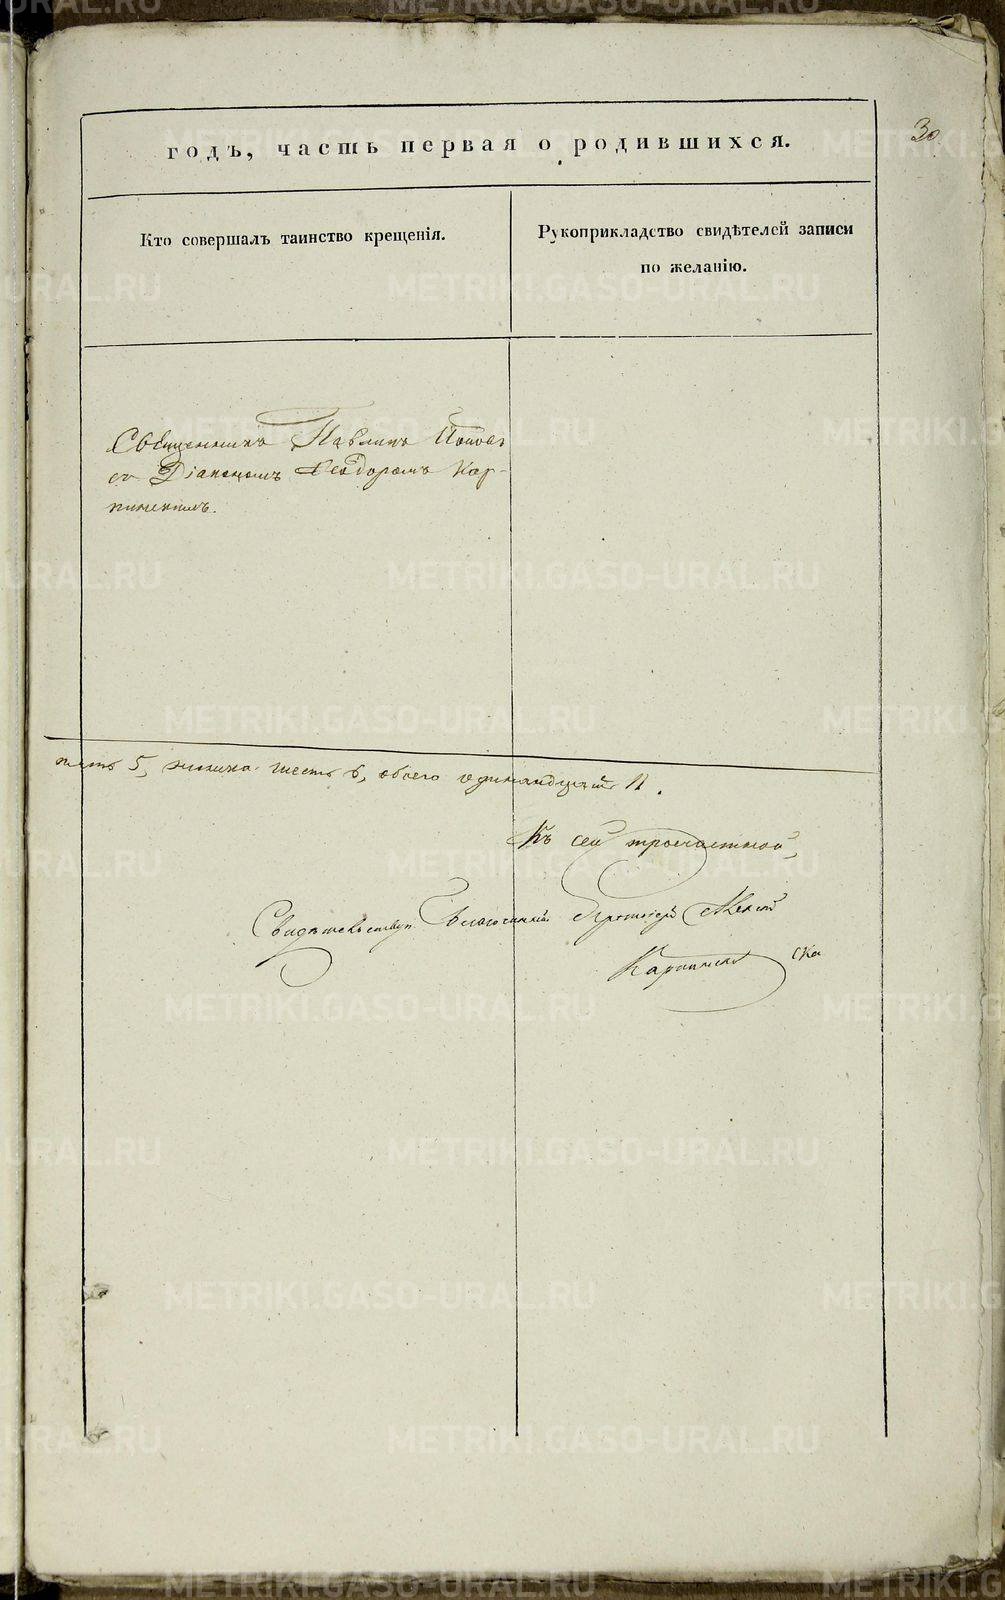 30
годъ, часть первая о родившихся.
Кто совершалъ таинство крещенія.
Рукоприкладство свидѣтелей записи
по желанію.
Священникъ Павлинъ Поповъ
съ Діакономъ Ѳеодоромъ Кар-
пинскимъ.
пять 5, женска шесть 6, обоего одинандцать 11.
Къ сей троечастной,
Свидѣтельствуп. Благочинный Протоіерей
Карпинскій
METRIKI.GASO-URAL.RU